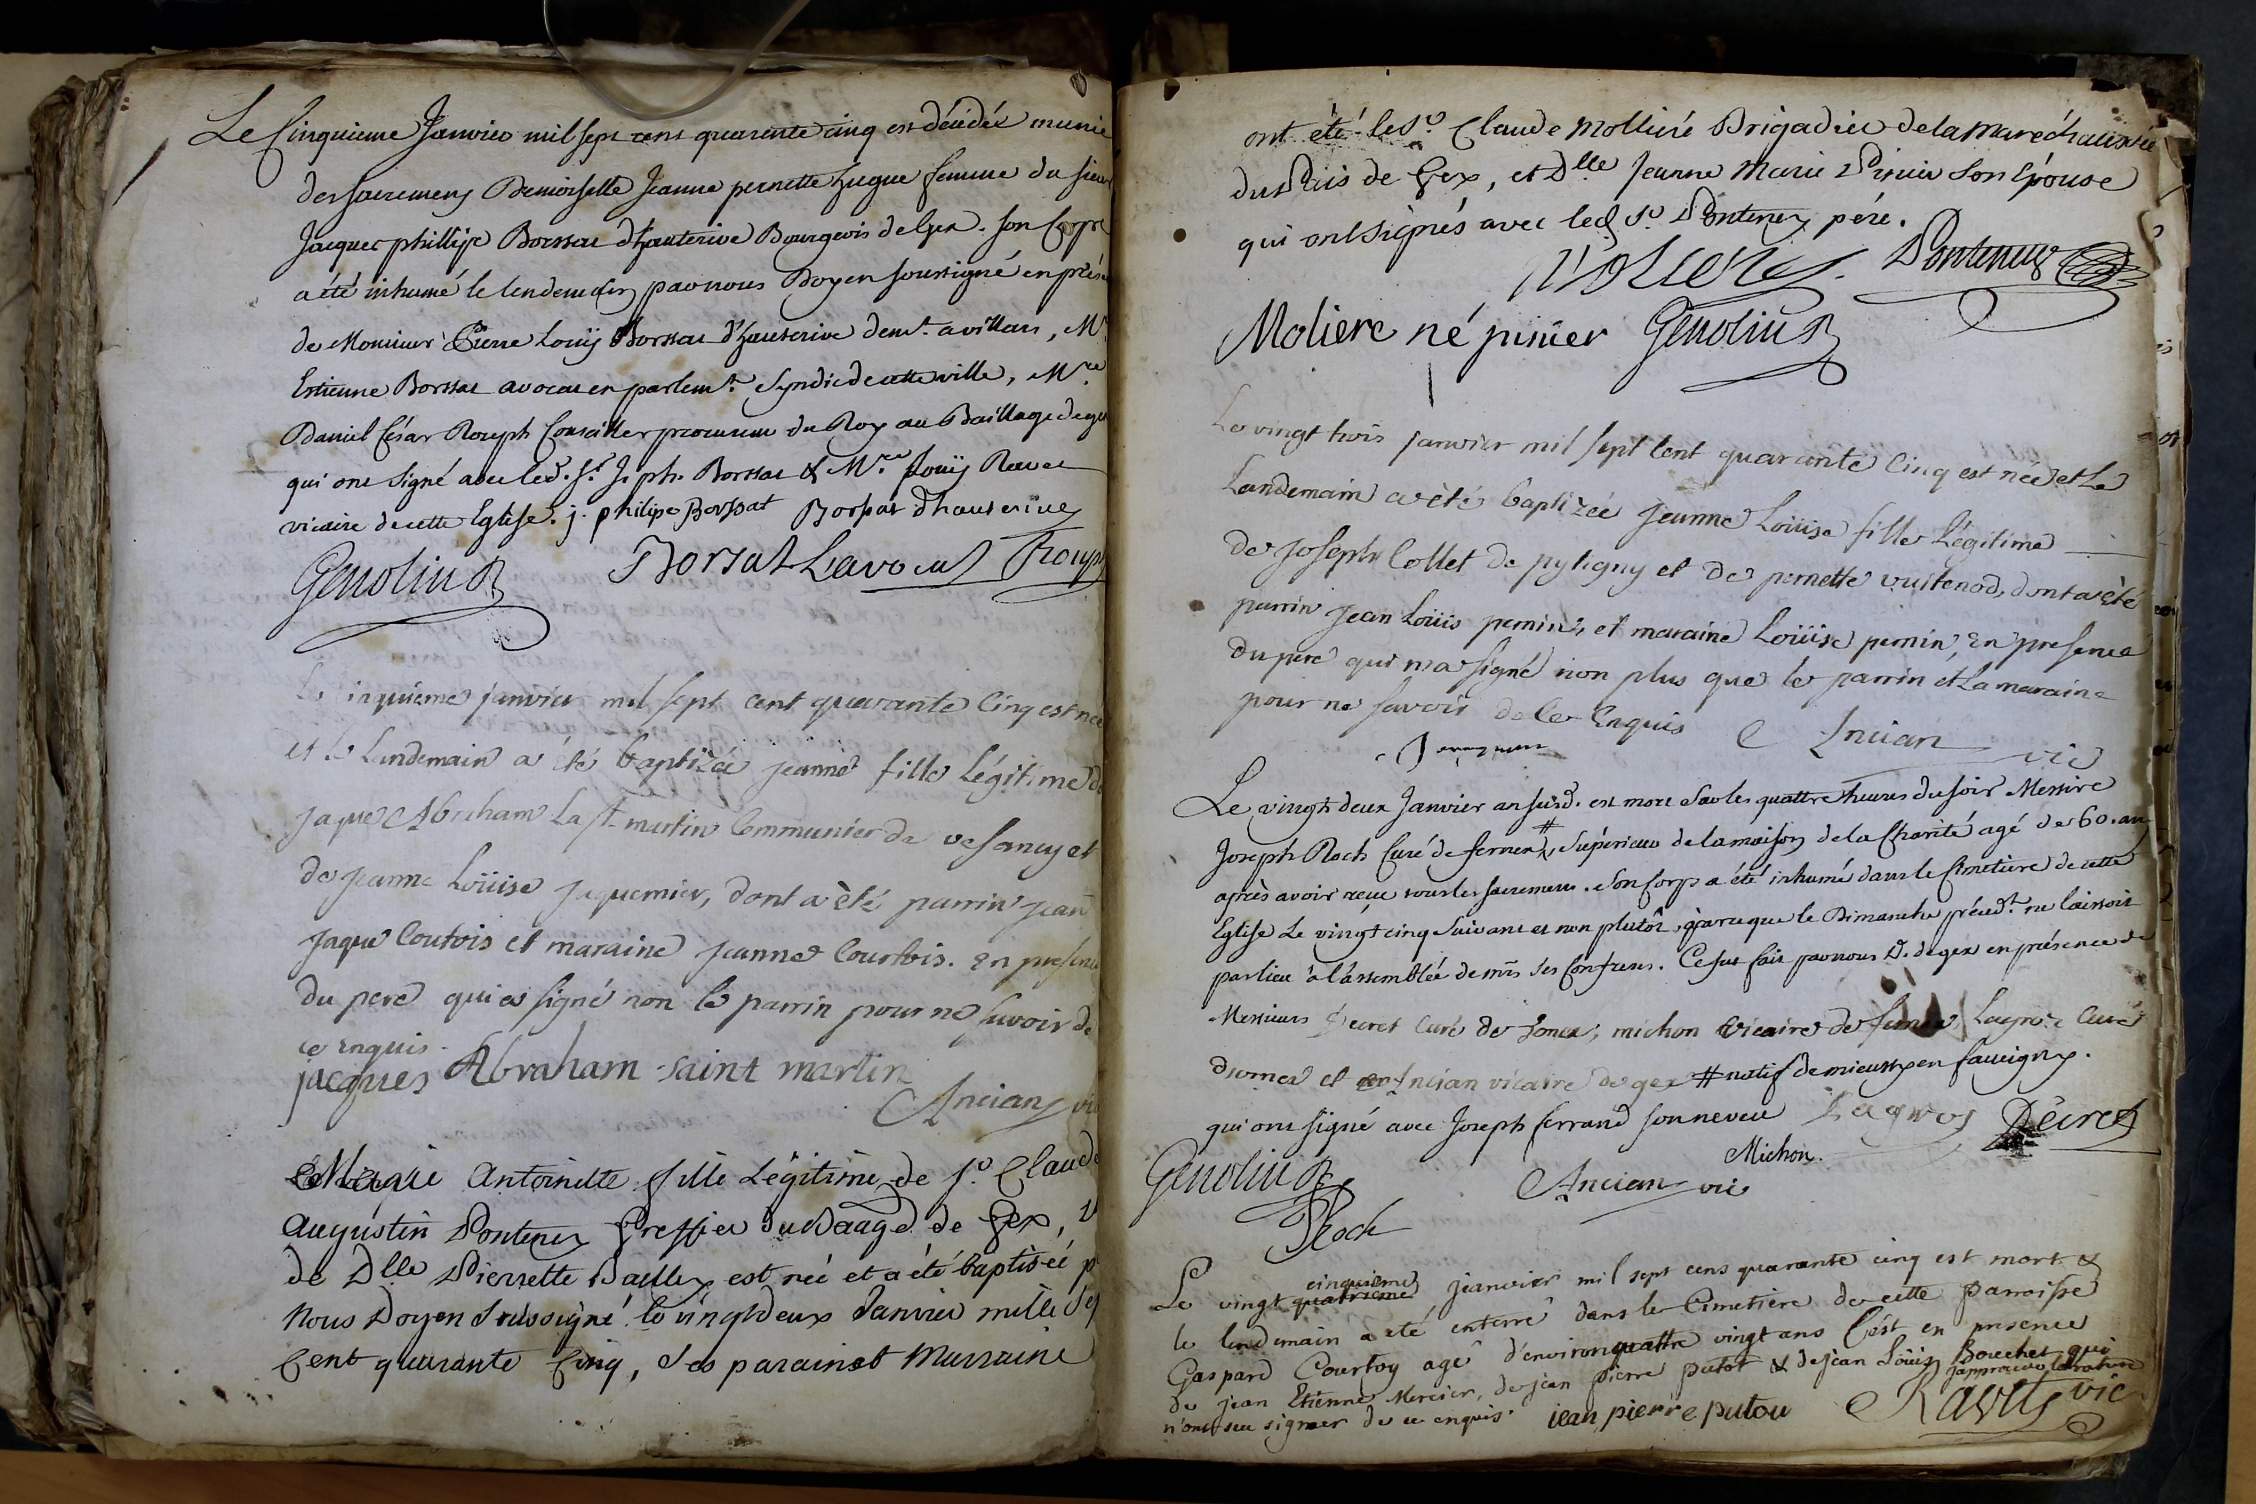 Le Cinquieme Janvier mil sept cent quarente cinq est décédée munie
des sacremens Demoiselle Jeanne pernette hugue femme du sieur
Jacques phillipe Borssat d'hauterive Bourgeois de Gex. son Corps
a été inhumé le lendemain par nous Doyen soussigné en prés
de Monsieur Pierre Louÿs Borssat d'hauterive demt. a villars, Mre
Estienne Borssat avocat en parlemt. Syndic de cette ville, Mre
Daniel César Rouph Conseiller procureur du Roy au Bailliage de gex
qui ont signé avec led. Sr. J. ph. Borssat & Mre. Louÿs Ravet
vicaire de cette Eglise. j. philipe Borssat Borssat Dhauterive
Genolin D Borsat Lavocat Rouph
Le cinquieme janvier mil sept cent quarante Cinq est née
et Le Landemain a été baptizée jeanne fille Légitime de
jaque Abraham La st. martin Communier de vesancy et
de jeanne Loüise jaquemier, dont a èté parrin jean
jaque Courtois et maraine jeanne Courtois. en presence
du pere qui a signé non le parrin pour ne savoir de
ce enquis.
jacques Abraham saint martin
Ancian vic
Marie Antoinette fille Légitime de Sr. Claude
Augustin Pontenex Greffier du Baage de Gex,
de Dlle Pierrette Bailly est née et a été baptisée p
Nous Doyen soussigné le vingt deux Janvier mille sep
Cent quarante Cinq, Ses parain et Marraine
ont été le Sr. Claude Molliere Brigadier de la Maréchaussée
du Païs de Gex, et Dlle Jeanne Marie Pinier son Epouse
qui ont signés avec led Sr. Pontenex père.
Moliere Pontenex
Moliere né pinier Genolin D
Le vingt trois janvier mil sept Cent quarante Cinq est née et Le
Landemain a èté baptizée jeanne Loüise fille Légitime
de joseph Collet de pytigny et de pernette vuitenod, dont a èté
parrin jean Loüis pernin, et maraine Loüise pernin, en presence
du pere qui n'a signé non plus que le parrin et La maraine
pour ne savoir de ce Enquis Ancian vic
Le vingt deux Janvier an susd. est mort sur les quattre heures du soir Messire
Joseph Roch Curé de fernex #, Supérieur de la maison de la Charité agé de 60. ans
après avoir reçu tous les sacremens. Son Corps a été inhumé dans le Cimetière de cette
Eglise Le vingt cinq suivant et non plutôt, parce que le Dimanche précedt. ne laissoit
pas lieu à l'assemblée de mrs ses Confreres. Ce fut fait par nous D. de gex en présence de
Messieurs Decret Curé de , michon vicaire de fernex, Lagros Curé
d'ornex et Ancian vicaire de gex # natif de mieussy en faucigny.
qui ont signé avec Joseph ferrand son neveu Lagros Decret
Michon.
Genolin D Ancian vic
Roch
cinquieme
Le vingt quatrieme jeanvier mil sept cens quarante cinq est mort &
le lendemain a eté enterré dans le Cimetière de cette parroisse
Gaspard Courtoy agé d'environ quattre vingt ans C'est en presence
de jean Etienne Mercier, de jean pierre putot & de jean Loüis Bouchet qui
n'ont seu signer de ce enquis. jean pierre putou j'approuve la rature
Ravet vic